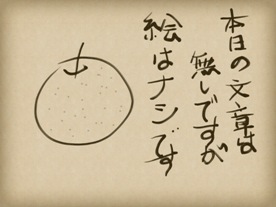 本日の文章は
無しですが
絵はナシです